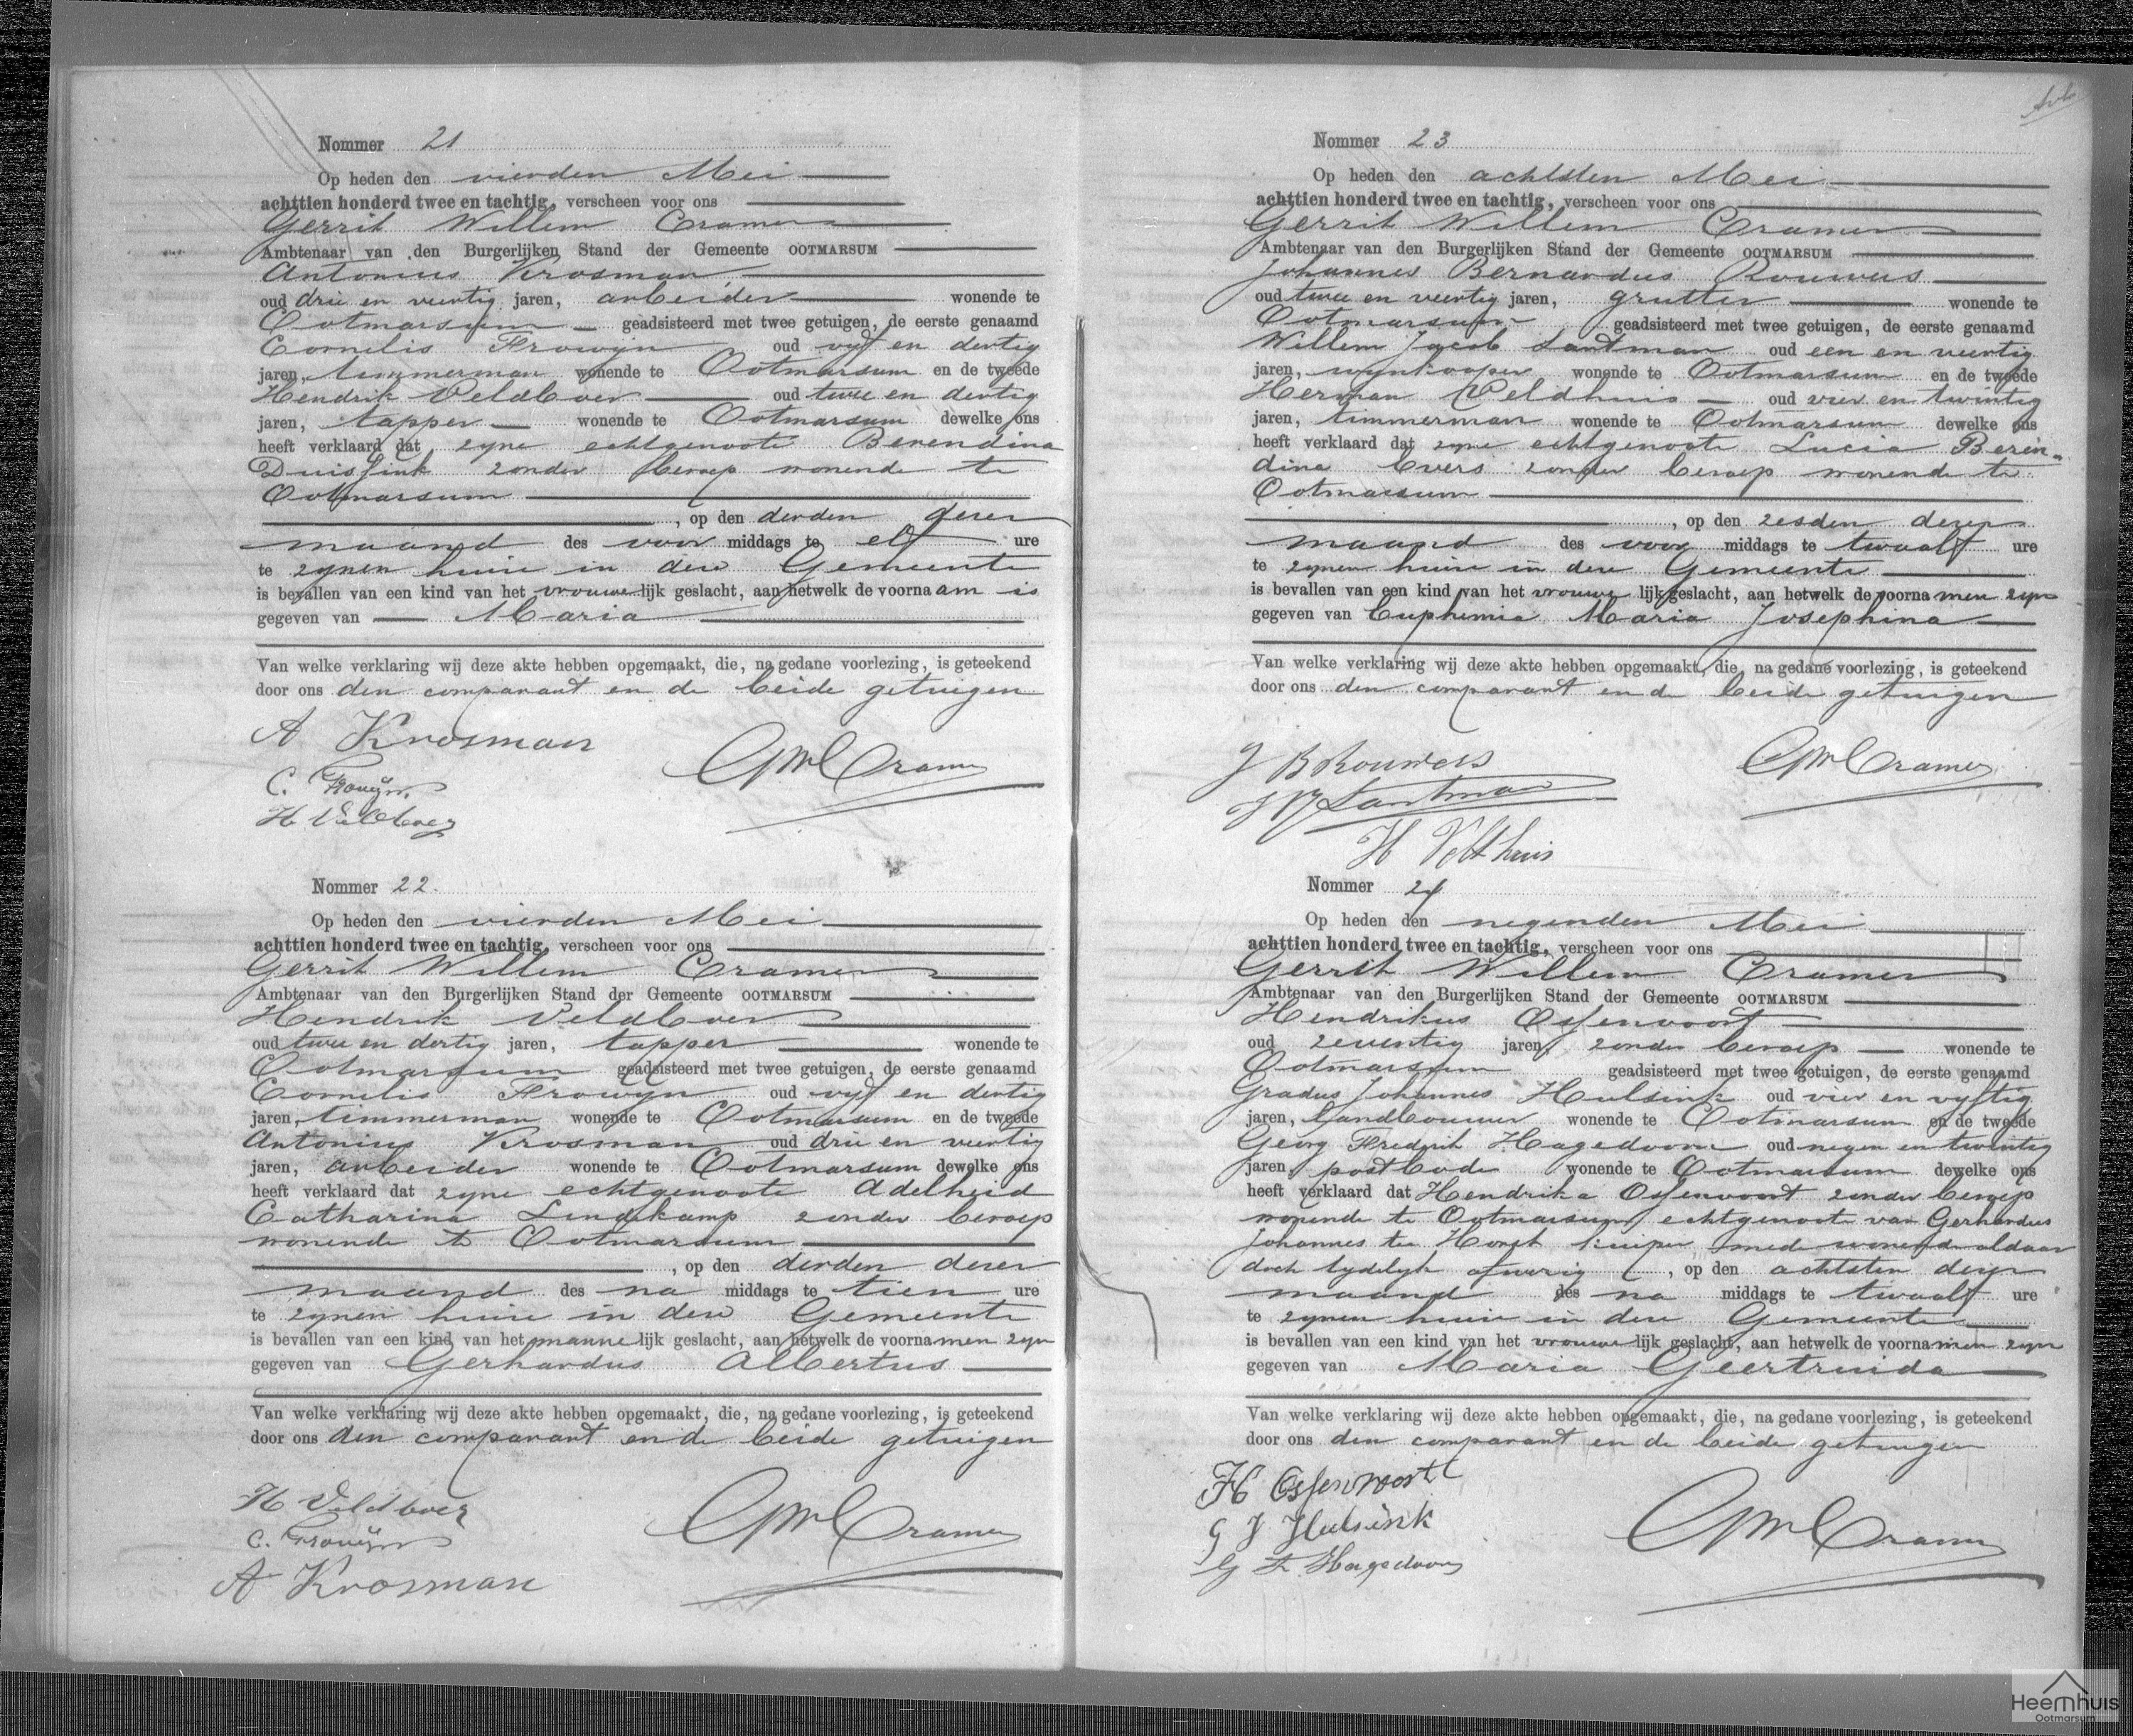 Nommer 21
Op heden den vierden Mei
achttien honderd twee en tachtig, verscheen voor ons
Gerrit Willem Cramer
Ambtenaar van den Burgerlijken Stand der Gemeente OOTMARSUM
Antonius Krosman
oud drie en veertig jaren, arbeider wonende te
Ootmarsum geadsisteerd met twee getuigen, de eerste genaamd
Cornelis Frowyn oud vyf en dertig
jaren, timmerman wonende te Ootmarsum en de tweede
Hendrik Veldboer oud twee en dertig
jaren, tapper wonende te Ootmarsum dewelke ons
heeft verklaard dat zyne echtgenoote Berendina
Duisfink zonder beroep wonende te
Ootmarsum
, op den derden dezer
maand des voor middags te elf ure
te zynen huise in deze Gemeente
is bevallen van een kind van het vrouwelijk geslacht, aan hetwelk de voornaam is
gegeven van Maria
Van welke verklaring wij deze akte hebben opgemaakt, die, na gedane voorlezing, is geteekend
door ons den comparant en de beide getuigen
A Krosman
GWCramer
C. Frowÿn
H Veldboer
Nommer 22.
Op heden den vierden Mei
achttien honderd twee en tachtig, verscheen voor ons
Gerrit Willem Cramer
Ambtenaar van den Burgerlijken Stand der Gemeente OOTMARSUM
Hendrik Veldboer
oud twee en dertig jaren, tapper wonende te
Ootmarsum geadsisteerd met twee getuigen, de eerste genaamd
Cornelis Frowyn oud vyf en dertig
jaren, timmerman wonende te Ootmarsum en de tweede
Antonius Krosman oud drie en veertig
jaren, arbeider wonende te Ootmarsum dewelke ons
heeft verklaard dat zyne echtgenoote Adelheid
Catharina Lindekamp zonder beroep
wonende te Ootmarsum
, op den derden dezer
maand des na middags te tien ure
te zynen huise in deze Gemeente
is bevallen van een kind van het mannelijk geslacht, aan hetwelk de voornamen zyn
gegeven van Gerhardus Albertus
Van welke verklaring wij deze akte hebben opgemaakt, die, na gedane voorlezing, is geteekend
door ons den comparant en de beide getuigen
H Veldboer
GWCramer
C. Frowÿn
A Krosman
Nommer 23
Op heden den achtsten Mei
achttien honderd twee en tachtig, verscheen voor ons
Gerrit Willem Cramer
Ambtenaar van den Burgerlijken Stand der Gemeente OOTMARSUM
Johannes Bernardus Rouwers
oud twee en veertig jaren, grutter wonende te
Ootmarsum geadsisteerd met twee getuigen, de eerste genaamd
Willem Jacob Santman oud een en veertig
jaren, wynkooper wonende te Ootmarsum en de tweede
Herman Veldhuis oud vier en twintig
jaren, timmerman wonende te Ootmarsum dewelke ons
heeft verklaard dat zyne echtgenoote Lucia Beren-
dina Evers zonder beroep wonende te
Ootmarsum
, op den zesden dezer
maand des voor middags te twaalf ure
te zynen huise in deze Gemeente
is bevallen van een kind van het vrouwelijk geslacht, aan hetwelk de voornamen zyn
gegeven van Euphemia Maria Josephina
Van welke verklaring wij deze akte hebben opgemaakt, die, na gedane voorlezing, is geteekend
door ons den comparant en de beide getuigen
J B Rouwers
GWCramer
Santman
H Velthuis
Nommer 24
Op heden den negenden Mei
achttien honderd twee en tachtig, verscheen voor ons
Gerrit Willem Cramer
Ambtenaar van den Burgerlijken Stand der Gemeente OOTMARSUM
Hendrikus Ossenvoort
oud zeventig jaren, zonder beroep wonende te
Ootmarsum geadsisteerd met twee getuigen, de eerste genaamd
Gradus Johannes Hulsink oud vier en vyftig
jaren, landbouwer wonende te Ootmarsum en de tweede
Georg Fredrik Hagedoorn oud negen en twintig
jaren postbode wonende te Ootmarsum dewelke ons
heeft verklaard dat Hendrika Ossenvoort zonder beroep
wonende te Ootmarsum, echtgenoote van Gerhardus
Johannes ter Horst kuiper mede wonende aldaar
doch tydelyk afwezig, op den achtsten dezer
maand des na middags te twaalf ure
te zynen huise in deze Gemeente
is bevallen van een kind van het vrouwelijk geslacht, aan hetwelk de voornamen zyn
gegeven van Maria Geertruida
Van welke verklaring wij deze akte hebben opgemaakt, die, na gedane voorlezing, is geteekend
door ons den comparant en de beide getuigen
H Ossenvoort
G J Hulsink
GWCramer
G F Hagedoorn
Heemhuis
Ootmarsum